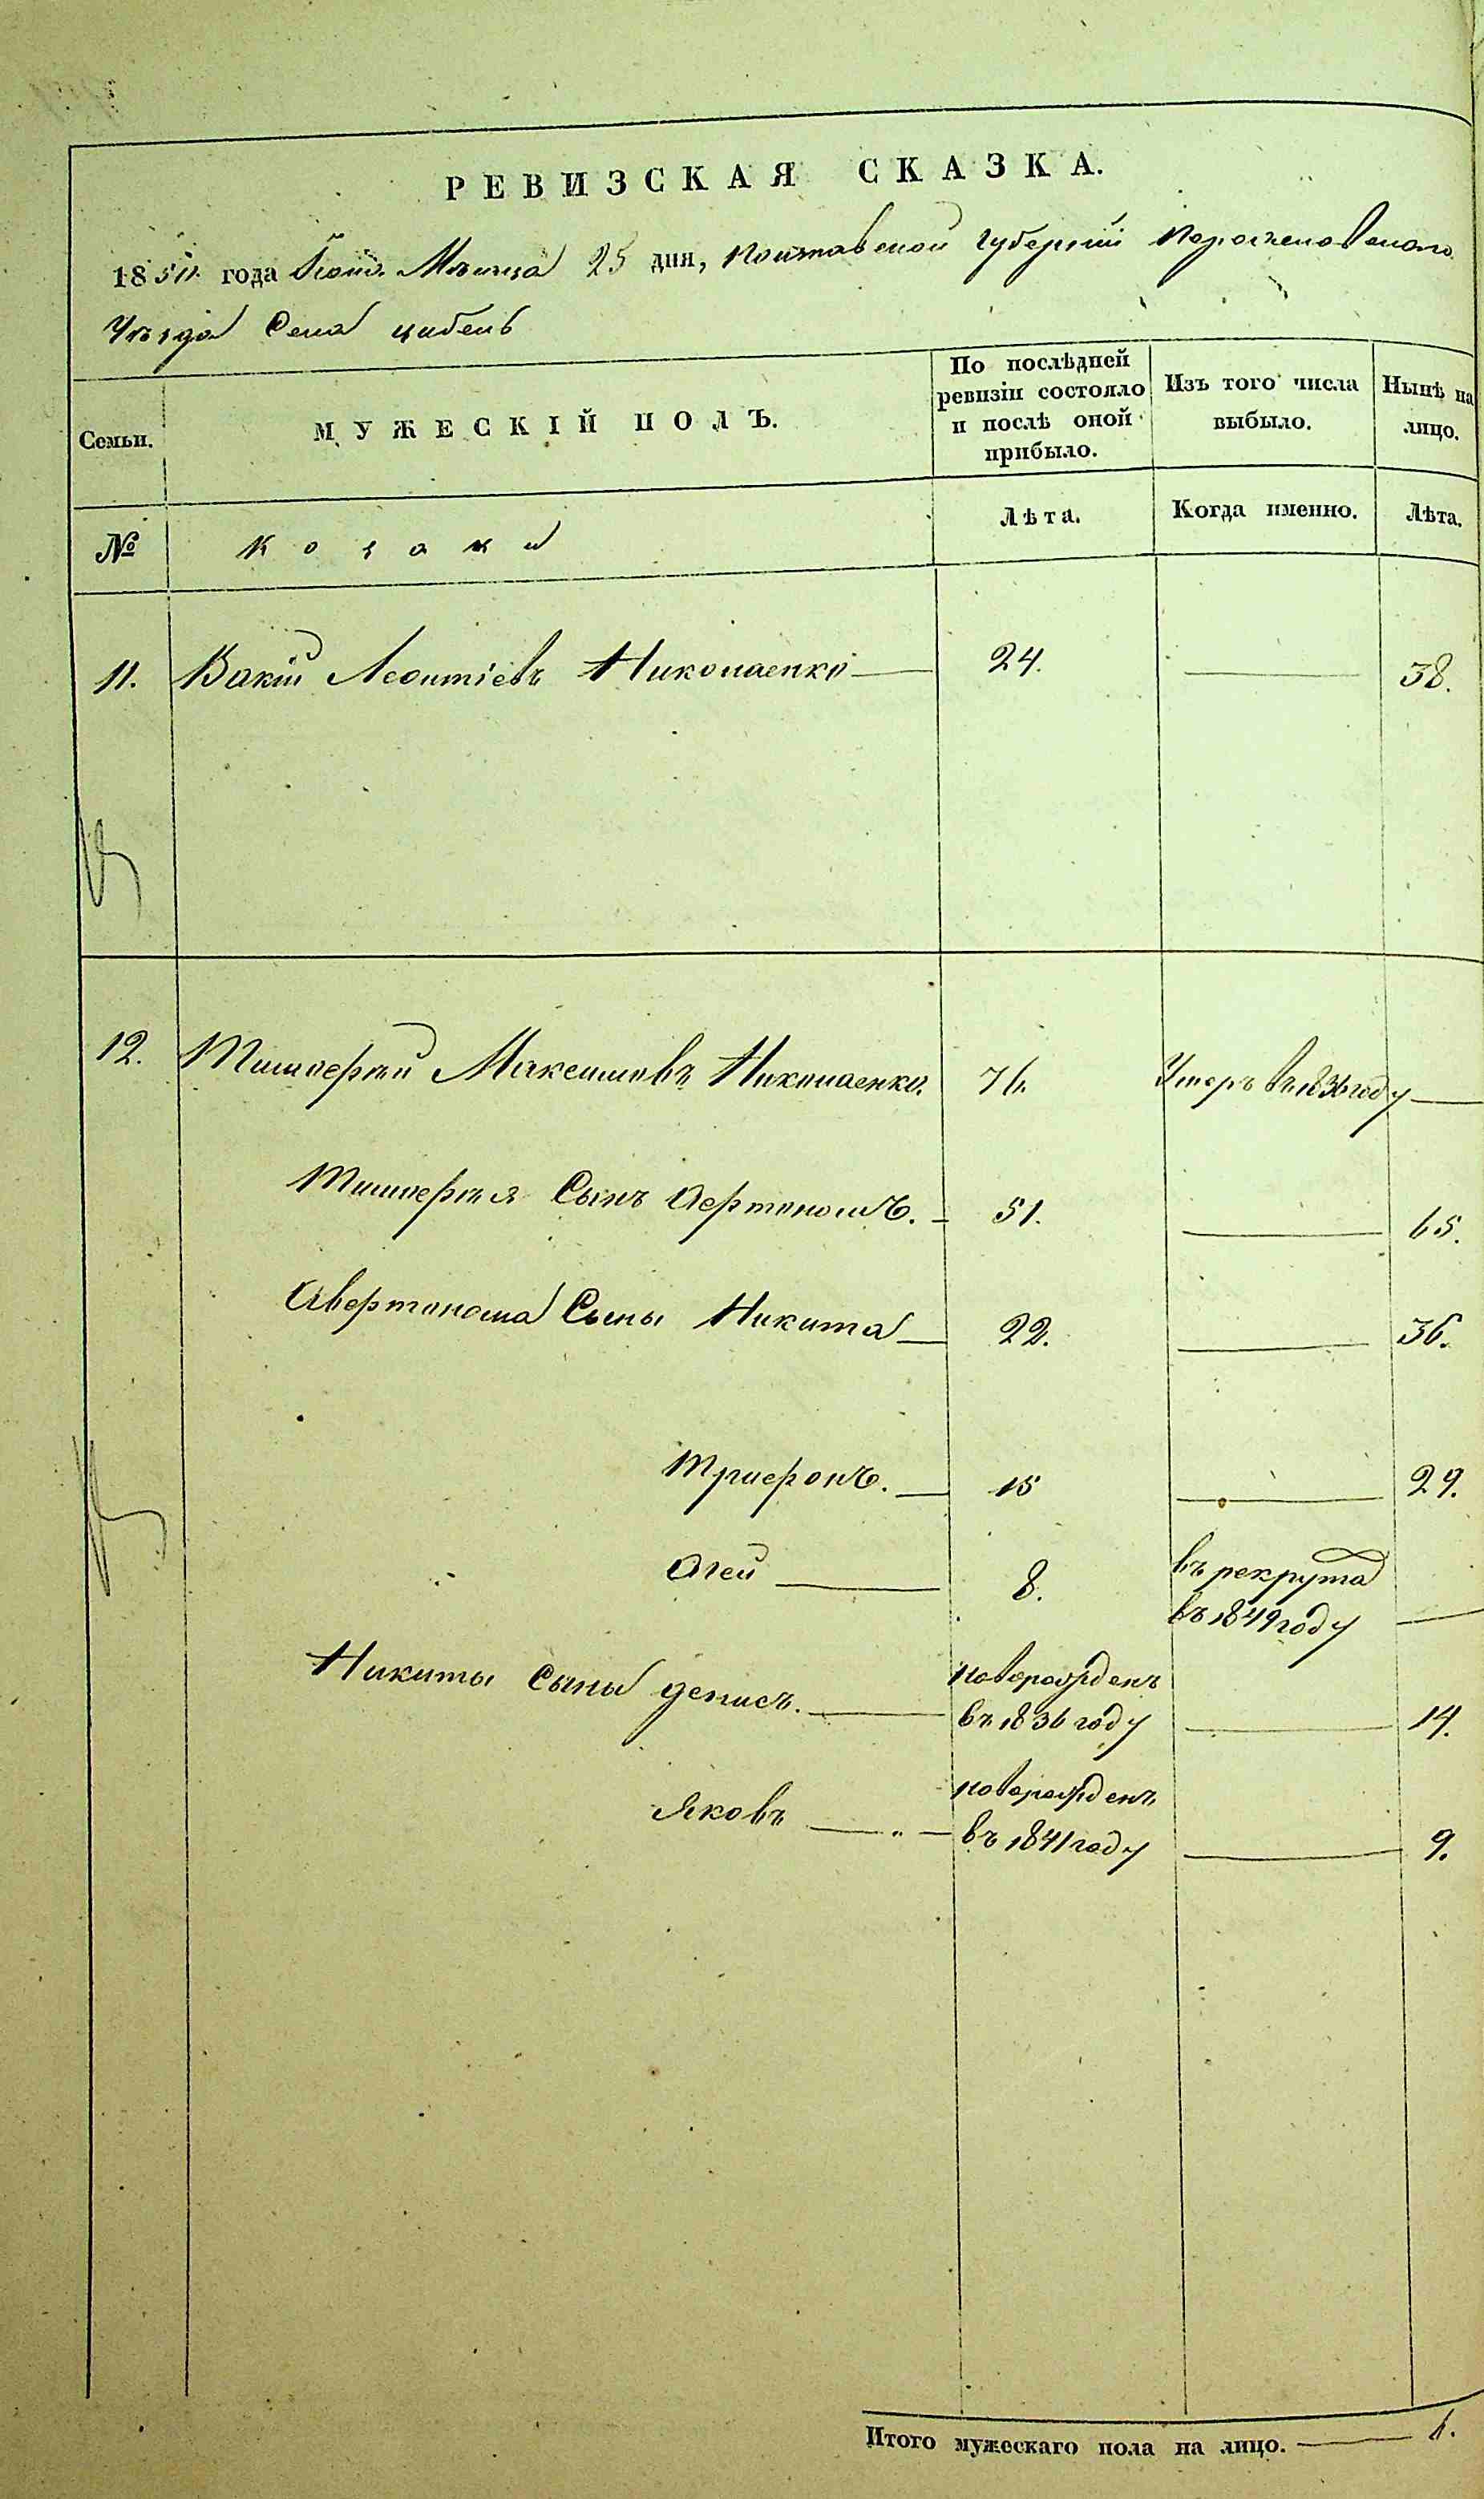 РЕВИЗСКАЯ СКАЗКА.
1850 года Мѣсяца 25 дня, Полтавской Губерніи
Уѣзда Села Цибель
Семьи.
МУЖЕСКІЙ ПОЛЪ.
По послѣдней
ревизіи состояло
и послѣ оной
прибыло.
Изъ того числа
выбыло.
Нынѣ на
лицо.
№
Козаки
Лѣта.
Когда именно.
Лѣта.
11. Леонтіевъ Николаенко 24. 38.
12. Тимоѳѣй Максимовъ Николаенко. 76. Умеръ въ 1836 году
Тимоѳѣя Сынъ 51. 65.
Авертонома Сыны Никита 22. 36.
Трифонъ. 15 29.
Агей 8. въ рекрута
въ 1849 году
Никиты Сыны Денисъ. новорожденъ
въ 1836 году 14.
Яковъ новорожденъ
въ 1841 году 9.
Итого мужескаго пола на лицо. 6.